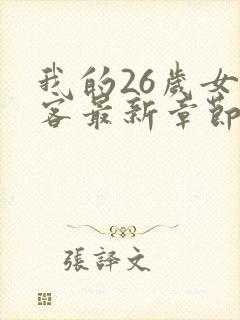 我的26歲女
客最新章節
張譯文